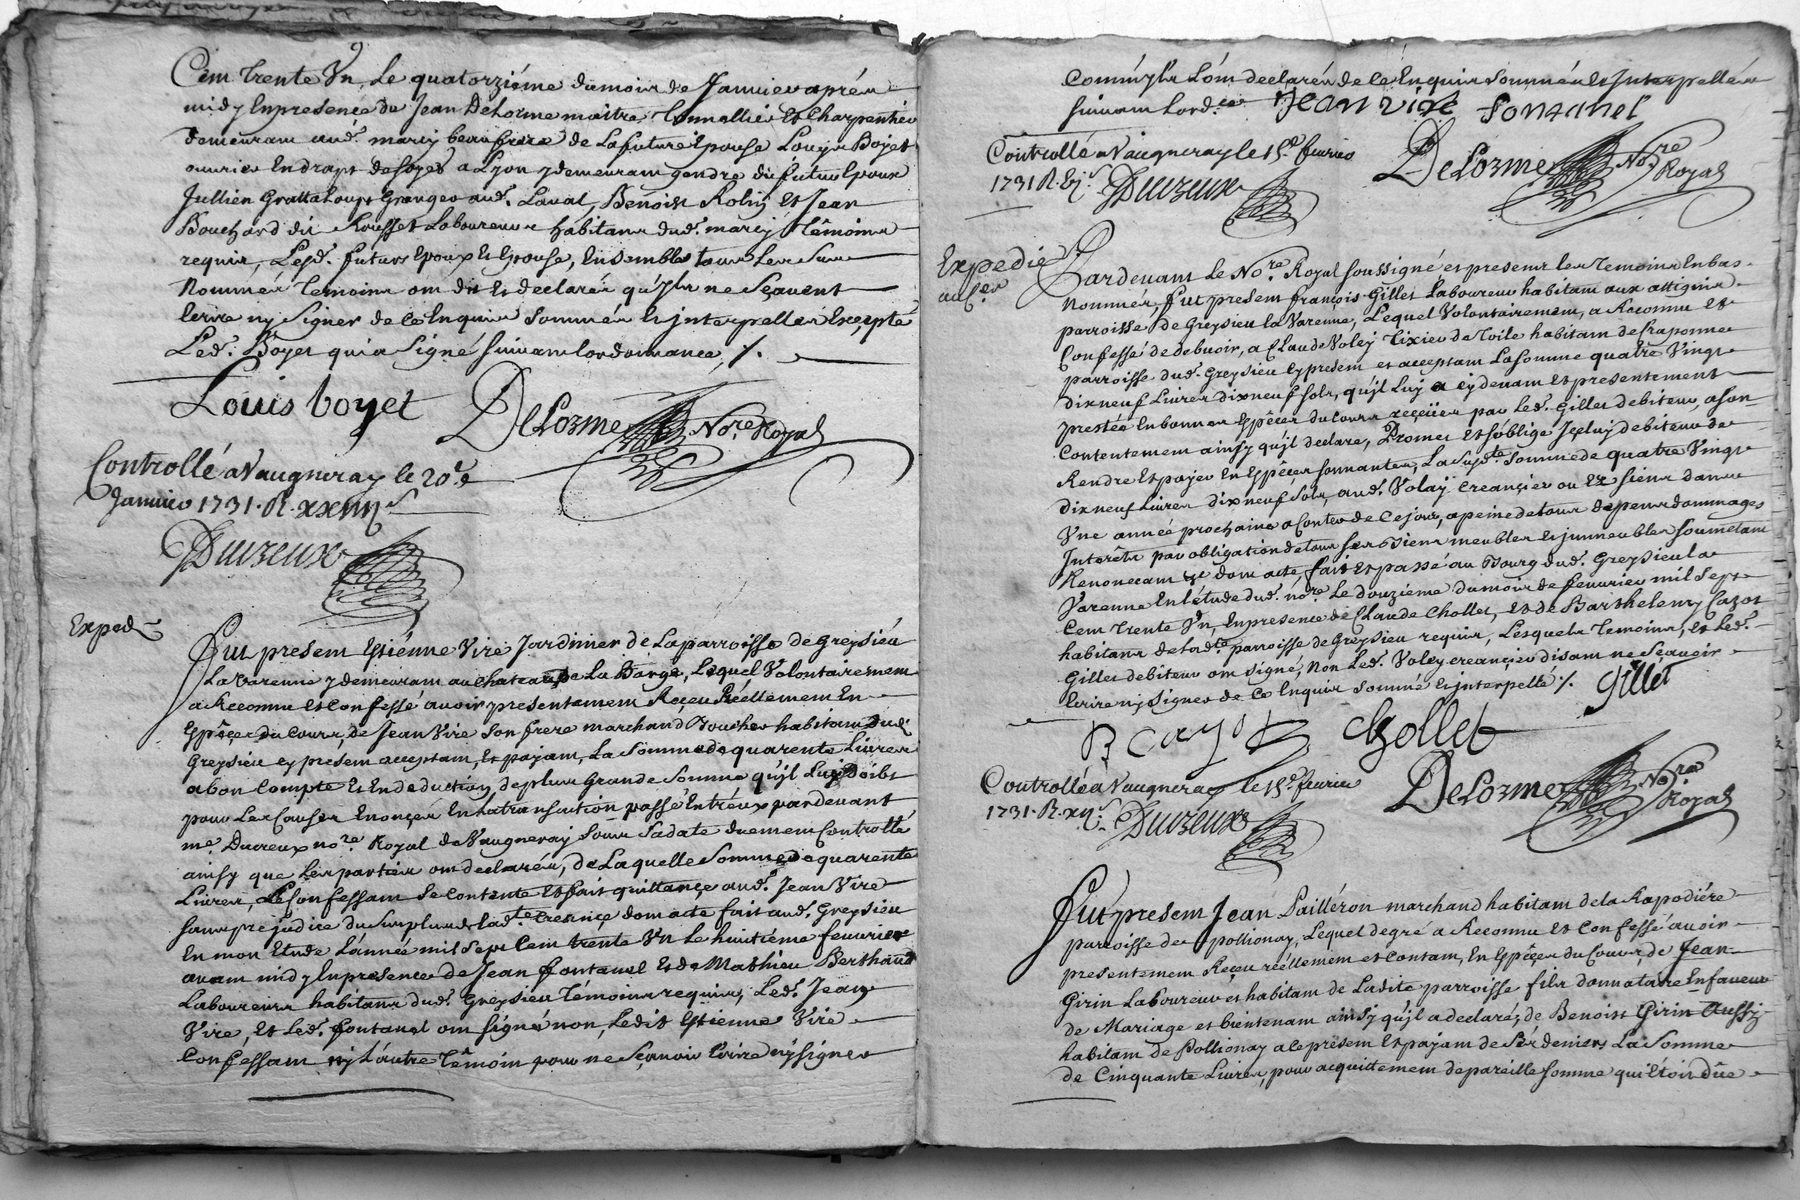 Cent trente Un, Le quatorziéme du mois de Janvier aprés
midy En presence de Jean Delorme maitre Tonnallier Et Charpentier
demeurant aud. marcy beaufrere de La future Epouse Louys Boyet
ouvrier En draps de soyes a Lyon y demeurant gendre du futur Epoux
Jullien Grattaloup Granger aud. Laval, Benoist Robin Et Jean
Bouchard dit Rousset Laboureurs habitans dud. marcy Témoins
requis, Lesd. futurs Epoux Et Epouse, Ensemble tous Les Sus
Nommés Temoins ont dit Et declarés qu'ils ne Sçavent
Ecrire ny Signer de ce Enquis Sommés Et interpellés Excepté
Led. Boyet qui a Signé Suivant Lordonnance ./.
Louis boyet DeLorme No.re Royal
Controllé a Vaugneray le 20.e
Janvier 1731. R. xxiiij s
Ducreux
Exped
Fut present Estiénne Viré Jardinier de La parroisse de Greysieu
La Varenne y demeurant au chateau de La Barge, Lequel Volontairement
a Reconnu Et Confessé avoir presentement Reçeu Réellement En
Espéces du Cours, de Jean Viré Son frere marchand Boucher habitant dud.
Greysieu cy present acceptant, Et payant, La Somme de quarente Livres
a bon Compte Et En deduction de plus Grande Somme qu'il Luy Doibt
pour Les Causes Enonçés En La transaction passé Entréux pardevant
me. Ducreux no.re Royal de Vaugneray Sous Sa date duement Controllé
ainsy que Les parties ont declarés, de Laquelle Somme de quarente
Livres, Le Confessant Se Contente Et fait quittançe aud. Jean Viré
Sans prejudice du Surplus de Lad.te Creançe dont acte fait aud. Greysieu
En mon Etude L'année mil Sept Cent trente Un Le huitiéme fevvrier
avant midy En presence de Jean fontanel Et de Mathieu Berthaud
Laboureurs habitans dud. Greysieu Témoins requis, Led. Jean
Viré, Et Led. fontanel ont Signé non Ledit Estienne Viré
Confessant ny L'autre Témoin pour ne Sçavoir Ecrire ny signer
Comm'ils L'ont declarés de Ce Enquis Sommés Et Interpellés
Suivant Lord.ce Jean viré fontanel
Controllé a Vaugneray le 15.e fevrier
1731 R. Ducreux DeLorme No.re Royal
Expedié
au Cer
Pardevant Le No.re Royal Soussigné et present les Temoins En bas
Nommés, fut present françois Gillet Laboureur habitant aux attignis
parroisse de Greysieu la Varenne, Lequel Volontairement, a Reconnu Et
Confessé de debvoir, a Claude Voley Tixier de Toile habitant de Craponne
parroisse dud. Greysieu cy present et acceptant La Somme quatre Vingt
dix neuf Livres dix neuf sols, qu'il Luy a cy devant Et presentement
prestée En bonnes Espéces du Cours reçeües par Led. Gillet debiteur, a son
Contentement ainsy qu'il declare, Promet Et s'oblige Iceluy debiteur de
Rendre Et payer En Espéces Sonnantes, La Susd.te Somme de quatre Vingt
dix neuf Livres dix neuf Sols, aud. Volay Creançier ou Ez Siens dans
Une année prochaine a Conter de Ce jour, a peine de tous depens dommages
Interêts par obligation de tous ses Biens meubles Et immeubles Soumetant
Renoncant Et dont acte fait Et passé au Bourg dud. Greysieu la
Varenne En L'étude dud. no.re Le douziéme du mois de fevvrier mil Sept
Cent trente Un, En presence de Claude Chollet, Et de Barthelemy Cazot
habitans de Lad.te parroisse de Greysieu requis, Lesquels Temoins, Et Led.
Gillet debiteur ont signé, Non Led. Voley creançier disant ne Sçavoir
Ecrire ny Signer de Ce Enquis Sommé Et interpellé ./. Gillet
Chollet
Controllé a Vaugneray le 15.e fevrier
1731. R. xij s. Ducreux DeLorme No.re Royal
Fut present Jean Pailléron marchand habitant de la Rapodiére
parroisse de pollionay, Lequel de gré a Reconnu Et Confessé avoir
presentement Reçeu réellement et Contant, En Espéces du Cours, de Jean
Girin Laboureur et habitant de Ladite parroisse fils donnataire En faveur
de Mariage et bientenant ainsy qu'il a declaré, de Benoist Girin Aussy
habitant de Pollionay a ce présent Et payant de Ses deniers La Somme
de Cinquante Livres, pour acquittement de pareille Somme qui Etoit dûe